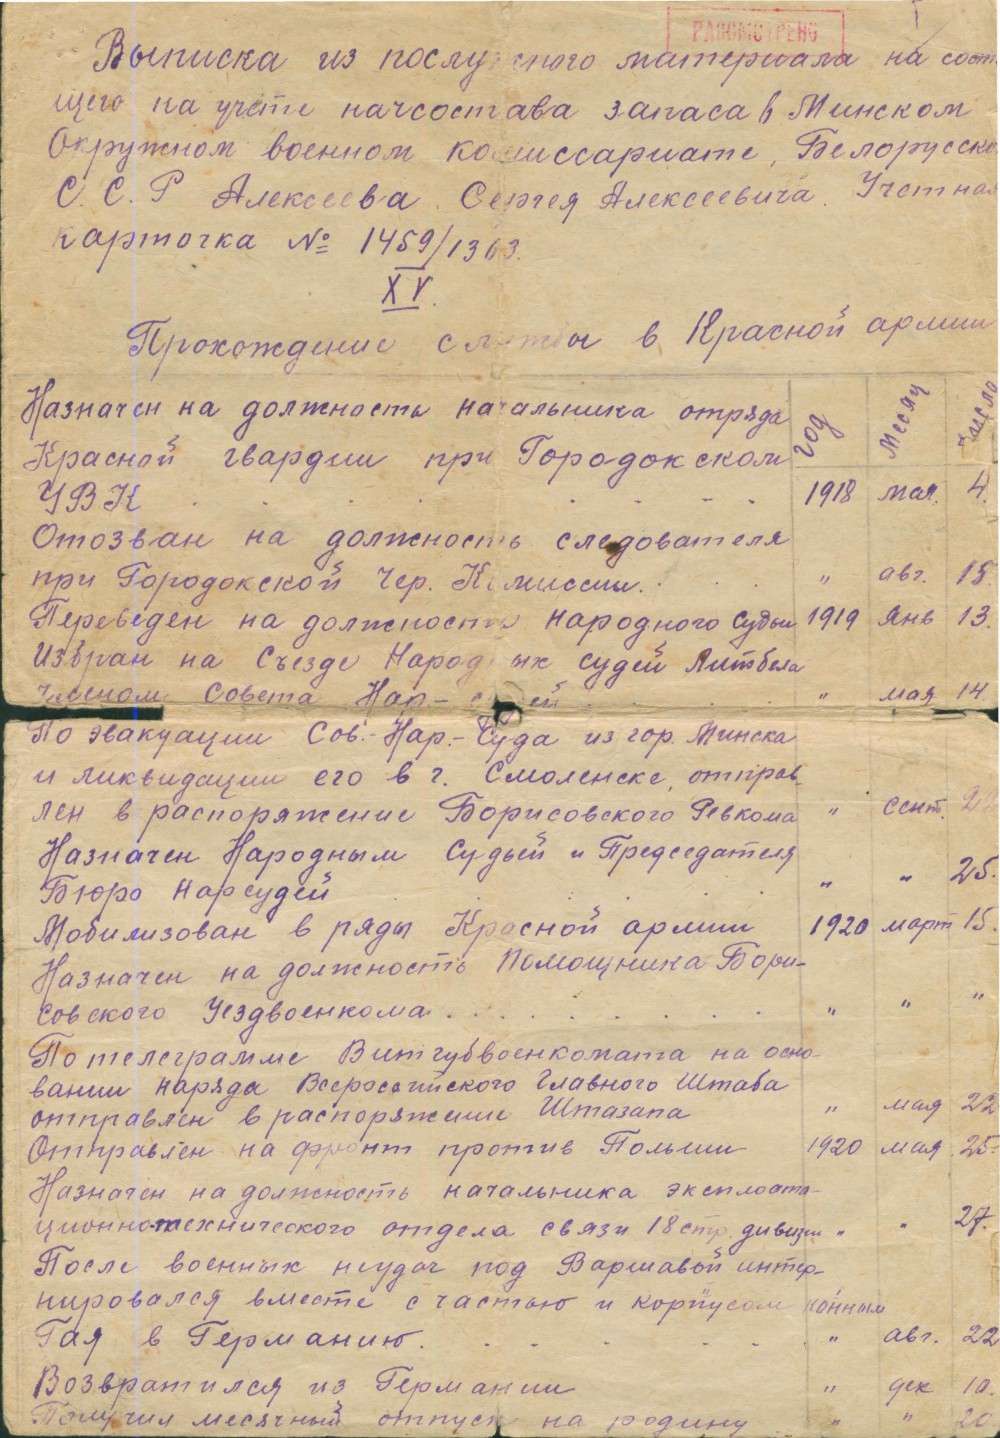 РАССМОТРЕНО
Выписка из послужного материала на состо
щего на учете начсостава запаса в Минском
Окружном военном комиссариате, Белорусско
С.С.Р Алексеева Сергея Алексеевича. Учетная
карточка № 1459/1363.
XV.
Прохождение службы в Красной армии
Назначен на должность начальника отряда год Месяц число
Красной гвардии при Городокском
УВК . . . . . . . . 1918 мая. 4.
Отозван на должность следователя
при Городокской Чер. Комиссии. . . . " авг. 15.
Переведен на должность Народного Судьи 1919 Янв 13.
Избран на Съезде Народных судей Литбела
членом Совета Нар- судей . . . . . " мая 14
По эвакуации Сов.-Нар.-Суда из гор. Минска
и ликвидации его в г. Смоленске, отправ
лен в распоряжение Борисовского Ревкома " сент.
Назначен Народным Судьей и Председателя
Бюро Нарсудей . . . . . " " 25.
Мобилизован в ряды Красной армии 1920 март 15.
Назначен на должность Помощника Бори-
совского Уездвоенкома. . . . . . . . . " " "
По телеграмме Витгубвоенкомата на осно-
вании наряда Всероссийского Главного Штаба
отправлен в распоряжение Штазапа " мая 22
Отправлен на фронт против Польши 1920 мая 25.
Назначен на должность начальника эксплоата-
ционнотехнического отдела связи 18 стр. дивизии " " 27.
После военных неудач под Варшавой интер-
нировался вместе с частью и корпусом конным
Гая в Германию. . . . . . . " авг. 22
Возвратился из Германии " дек 10.
Получил месячный отпуск на родину " " 20